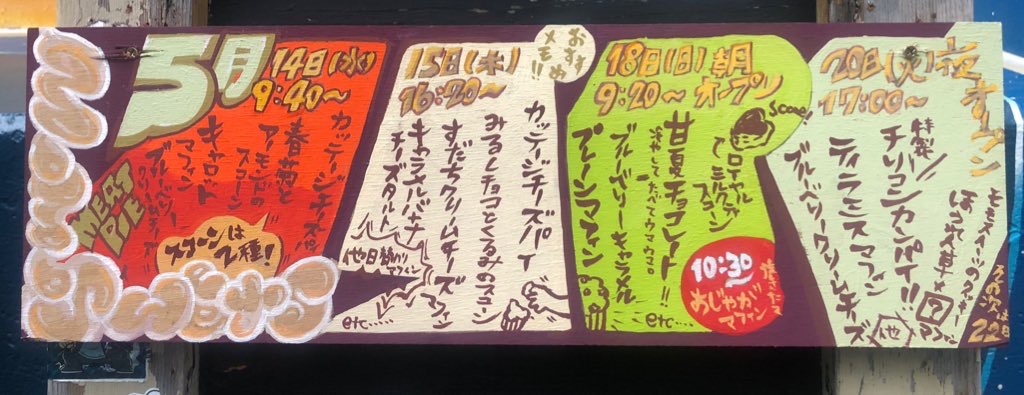 5月
14日(水)
9:40〜
カッテージチーズパイ
春菊と
アーモンドの
スコーン
キャロット
マフィン
ブルーベリー
クリームチーズ
MEAT
PIE
スコーンは
2種!
15日(木)
16:20〜
おすす
め
メモ!!
カッテージチーズパイ
みるくチョコとくるみのスコーン
すだちクリームチーズマフィン
キャラメルバナナ
チーズタルト
他日替りマフィン
etc.....
18日(日)朝
9:20〜オープン
Scone!
ロイヤル
ミルクティ
スコーン
甘夏チョコレート!!
冷やしてたべてウマウマ
ブルーベリーキャラメル
プレーンマフィン
10:30
焼きたて
めじゃがツ
マフィン
etc....
20日(火)夜
オープン
17:00〜
特製
チリコンカンパイ!!
ティラミスマフィン
ブルーベリークリームチーズ
ほうれん草×
他
その次は
22日